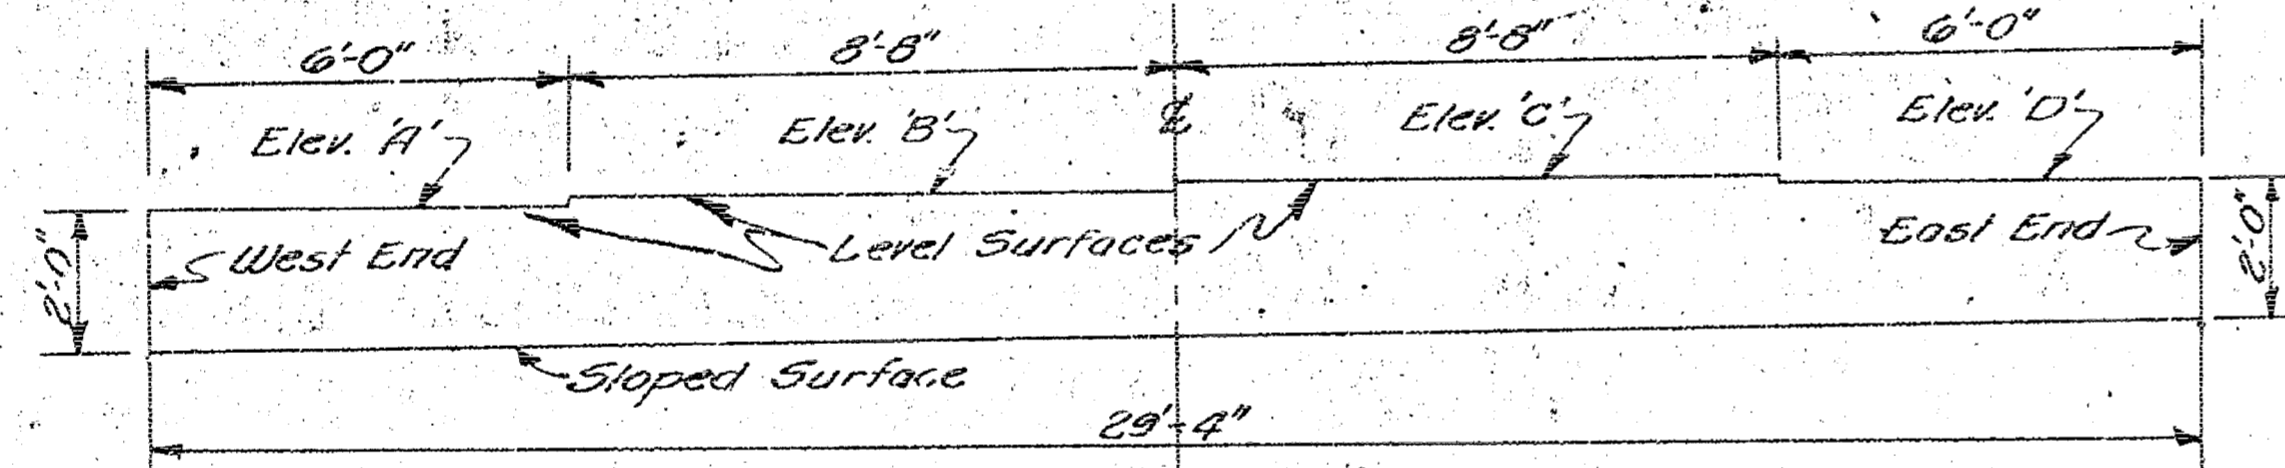 6'-0" 8'-8" 8'-8" 6'-0"
Elev. 'A' Elev. 'B' ℄ Elev. 'C' Elev. 'D'
2'-0" West End Level Surfaces East End 2'-0"
Sloped Surface
29'-4"